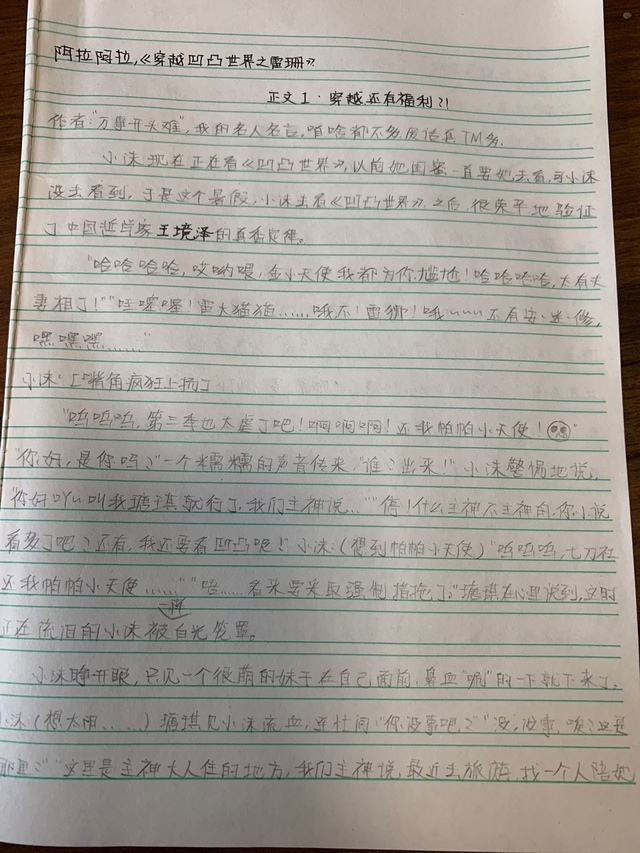 阿拉阿拉,《穿越凹凸世界之雷珊》
正文1·穿越还有福利?!
作者:"万事开头难",我的名人名言,咱啥都不多,废话真TM多.
小沫现在正在看《凹凸世界》,以前她闺蜜一直要她去看,可小沫
没去看到,于是这个暑假,小沫去看《凹凸世界》之后,很荣平地验证
了中国哲学家王境泽的真香定律。
"哈哈哈哈,哎哟喂,金小天使我都为你尴尬!哈哈哈哈,太有夫
妻相了!""哇喔喔!雷大猫猫......哦不!雷狮!哦~~~还有安·迷·修,
嘿嘿嘿......"
小沫:[嘴角疯狂上扬]
"呜呜呜,第三季也太虐了吧!啊啊啊!还我帕帕小天使!"
"你好,是你吗?"一个糯糯的声音传来,"谁?出来!"小沫警惕地说,
"你好吖,叫我瑭琪就行了,我们主神说...""停!什么主神不主神的,你小说
看多了吧?还有,我还要看凹凸呢!"小沫:(想到帕帕小天使)"呜呜呜,七刀社
还我帕帕小天使......""唔......看来要采取强制措施了."瑭琪在心里说到,这时
正在流泪的小沫被一阵白光笼罩。
小沫睁开眼,只见一个很萌的妹子在自己面前,鼻血"呲"的一下就下来了。
小沫:(想太阳......)瑭琪见小沫流血,连忙问"你没事吧?""没,没事,唉?这是
那里?""这里是主神大人住的地方,我们主神说,最近去旅游,找一个人陪她